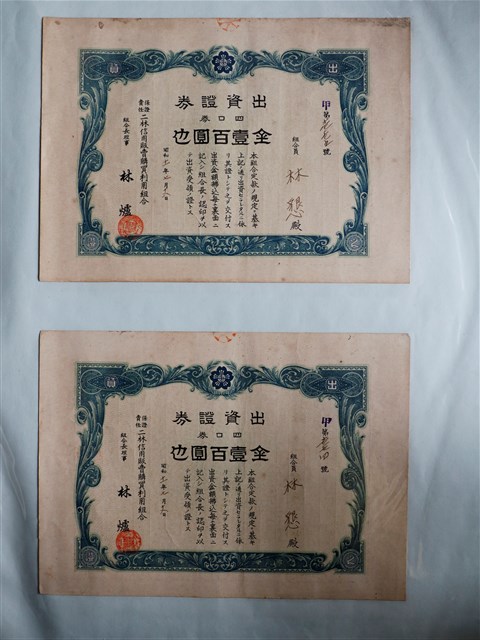 出資證券
四口券
金壹百圓也
甲第 號
組合員 林 殿
本組合定款ノ規定ニ基キ
上記ノ通リ出資セラレタルニ依
リ其證トシテ之ヲ交付ス
出資金額拂込每ニ裏面ニ
記入シ組合長ノ認印ヲ以
テ出資受領ノ證トス
昭和 年 月 日
保證責任 二林信用販賣購買利用組合
組合長理事 林 爐
出資證券
四口券
金壹百圓也
甲第 號
組合員 林 殿
本組合定款ノ規定ニ基キ
上記ノ通リ出資セラレタルニ依
リ其證トシテ之ヲ交付ス
出資金額拂込每ニ裏面ニ
記入シ組合長ノ認印ヲ以
テ出資受領ノ證トス
昭和 年 月 日
保證責任 二林信用販賣購買利用組合
組合長理事 林 爐